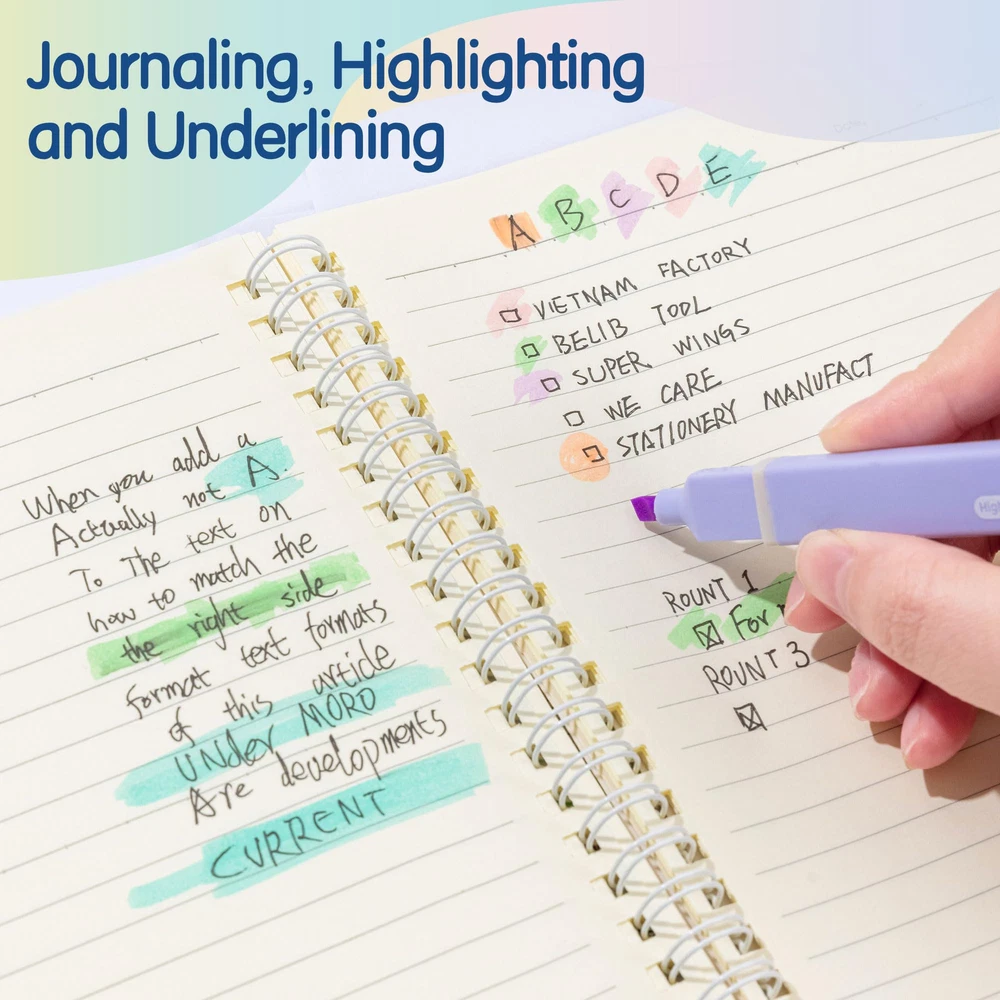 Journaling, Highlighting
and Underlining
When you add a
Actually not A.
To The text on
how to match the
the right side
format text formats
of this article
UNDER MORO
Are developments
CURRENT
A B C D E
VIETNAM FACTORY
BELIB TOOL
SUPER WINGS
WE CARE
STATIONERY MANUFACT
High
ROUNT 1
For
ROUNT 3